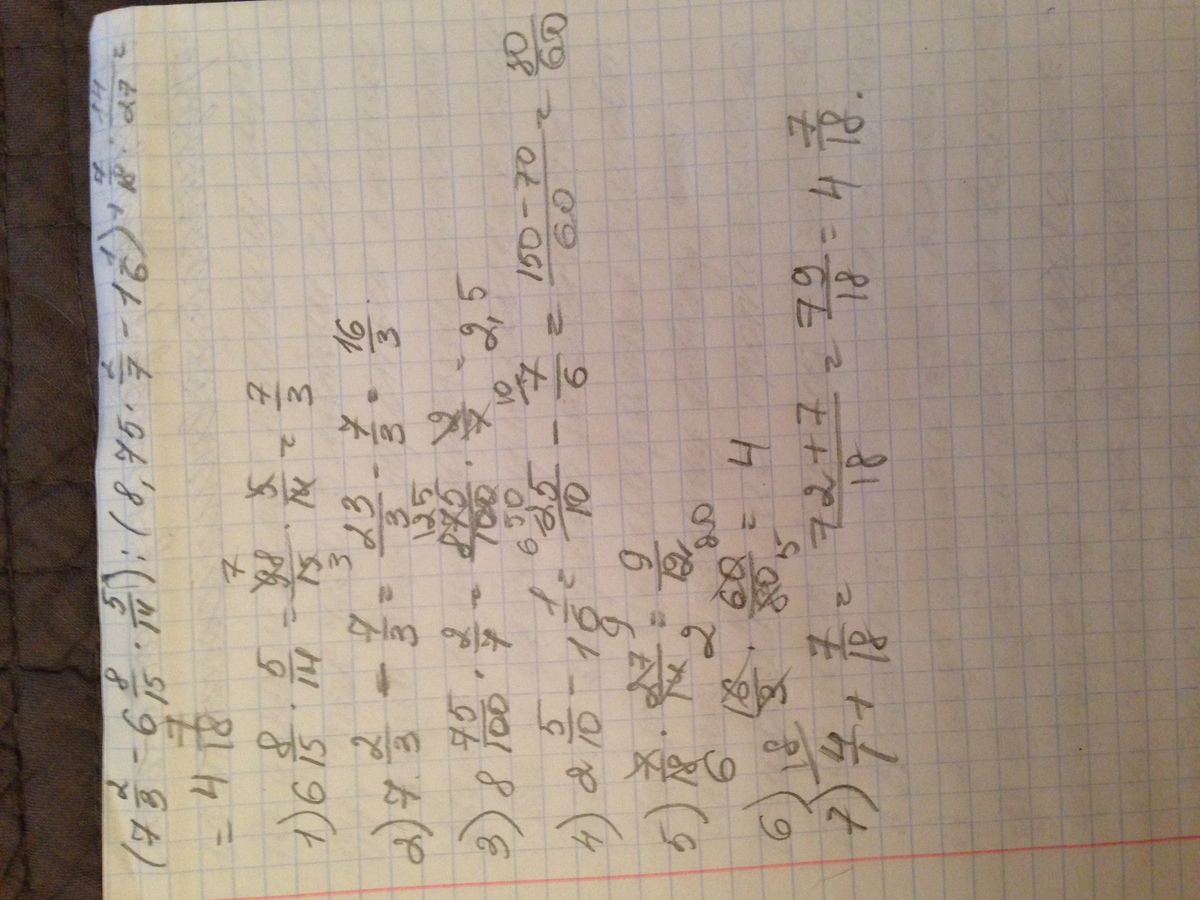 (7 2/3 - 6 8/15 · 5/14) : (8,75 · 2/7 - 1 1/6) + 7/18 : 14/27 =
= 4 7/18
1) 6 8/15 · 5/14 = 98/15 · 5/14 = 7/3
2) 7 2/3 - 7/3 = 23/3 - 7/3 = 16/3.
3) 8 75/100 · 2/7 = 875/100 · 2/7 = 2,5
4) 2 5/10 - 1 1/6 = 25/10 - 7/6 = (150-70)/60 = 80/60
5) 7/18 · 27/14 = 9/12
6) 16/3 · 60/80 = 4
7) 4/1 + 7/18 = (72+7)/18 = 79/18 = 4 7/18.